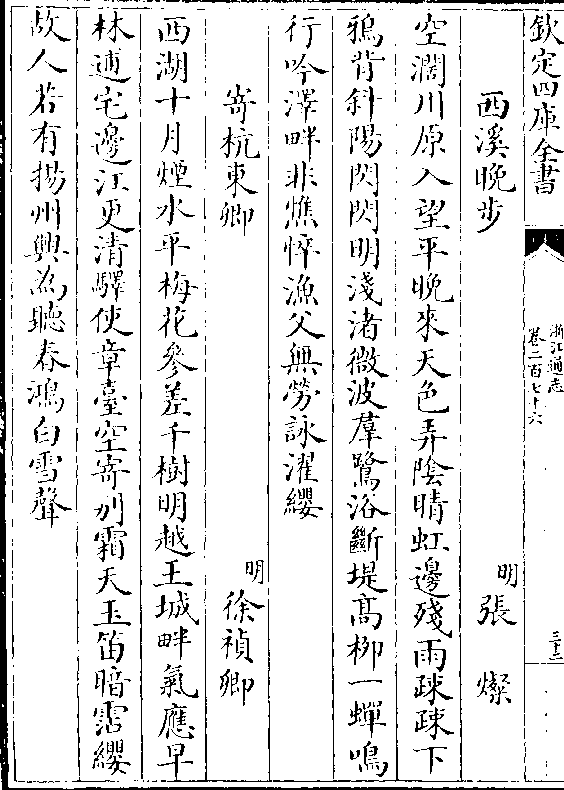 欽定四庫全書
浙江通志
卷二百七十六
三十二
西溪晚步
明張　燦
空濶川原入望平晚來天色弄陰晴虹邊殘雨踈踈下
鴉背斜陽閃閃明淺渚微波羣鷺浴斷堤髙柳一蟬鳴
行吟澤畔非憔悴漁父無勞詠濯纓
寄杭東卿
明徐禎卿
西湖十月煙水平梅花參差千樹明越王城畔氣應早
林逋宅邊江更清驛使章臺空寄别霜天玉笛暗霑纓
故人若有揚州興為聽春鴻白雪聲